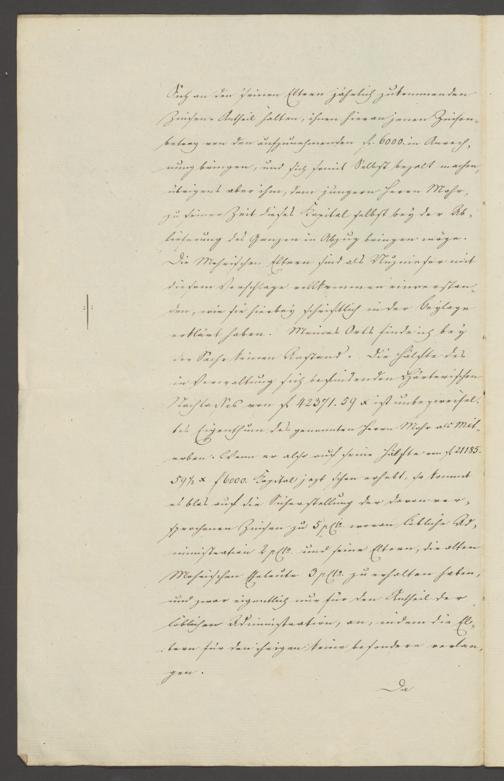 sich an den seinen Eltern jährlich zukommenden
Zinsen-Antheil halten, ihnen hieran jenen Zinsen-
betrag von den aufzunehmenden fl. 6000. in Anrech-
nung bringen, und sich somit Selbst bezalt machen,
übrigens aber ihm, dem jüngern Herrn Mohr,
zu seiner Zeit dieses Kapital selbst bey der Ab-
lieferung des Ganzen in Abzug bringen möge.
Die Mohrischen Eltern sind als Nuznieser mit
diesem Vorschlage vollkommen einverstan-
den, wie sie hierbey schriftlich in der Beylage
erklärt haben. Meines Orts finde ich bey
der Sache keinen Anstand. Die Hälfte des
in Verwaltung sich befindenden Härterischen
Nachlasses von fl 42371.59 x ist unbezweifel-
tes Eigenthum des genannten Herrn Mohr als Mit-
erben. Wenn er also auf seine Hälfte von fl 21185.
59½ x f 6000. Kapital jezt schon erhebt, so kommt
es blos auf die Sicherstellung der davon ver-
sprochenen Zinsen zu 5 pCto. wovon löbliche Ad-
ministration 2 pCto. und seine Eltern, die alten
Mohrischen Eheleute 3 pCto. zu erhalten haben,
und zwar eigentlich nur für den Antheil der
löblichen Administration, an, indem die El-
tern für den ihrigen keine besondere verlan-
gen.
Da